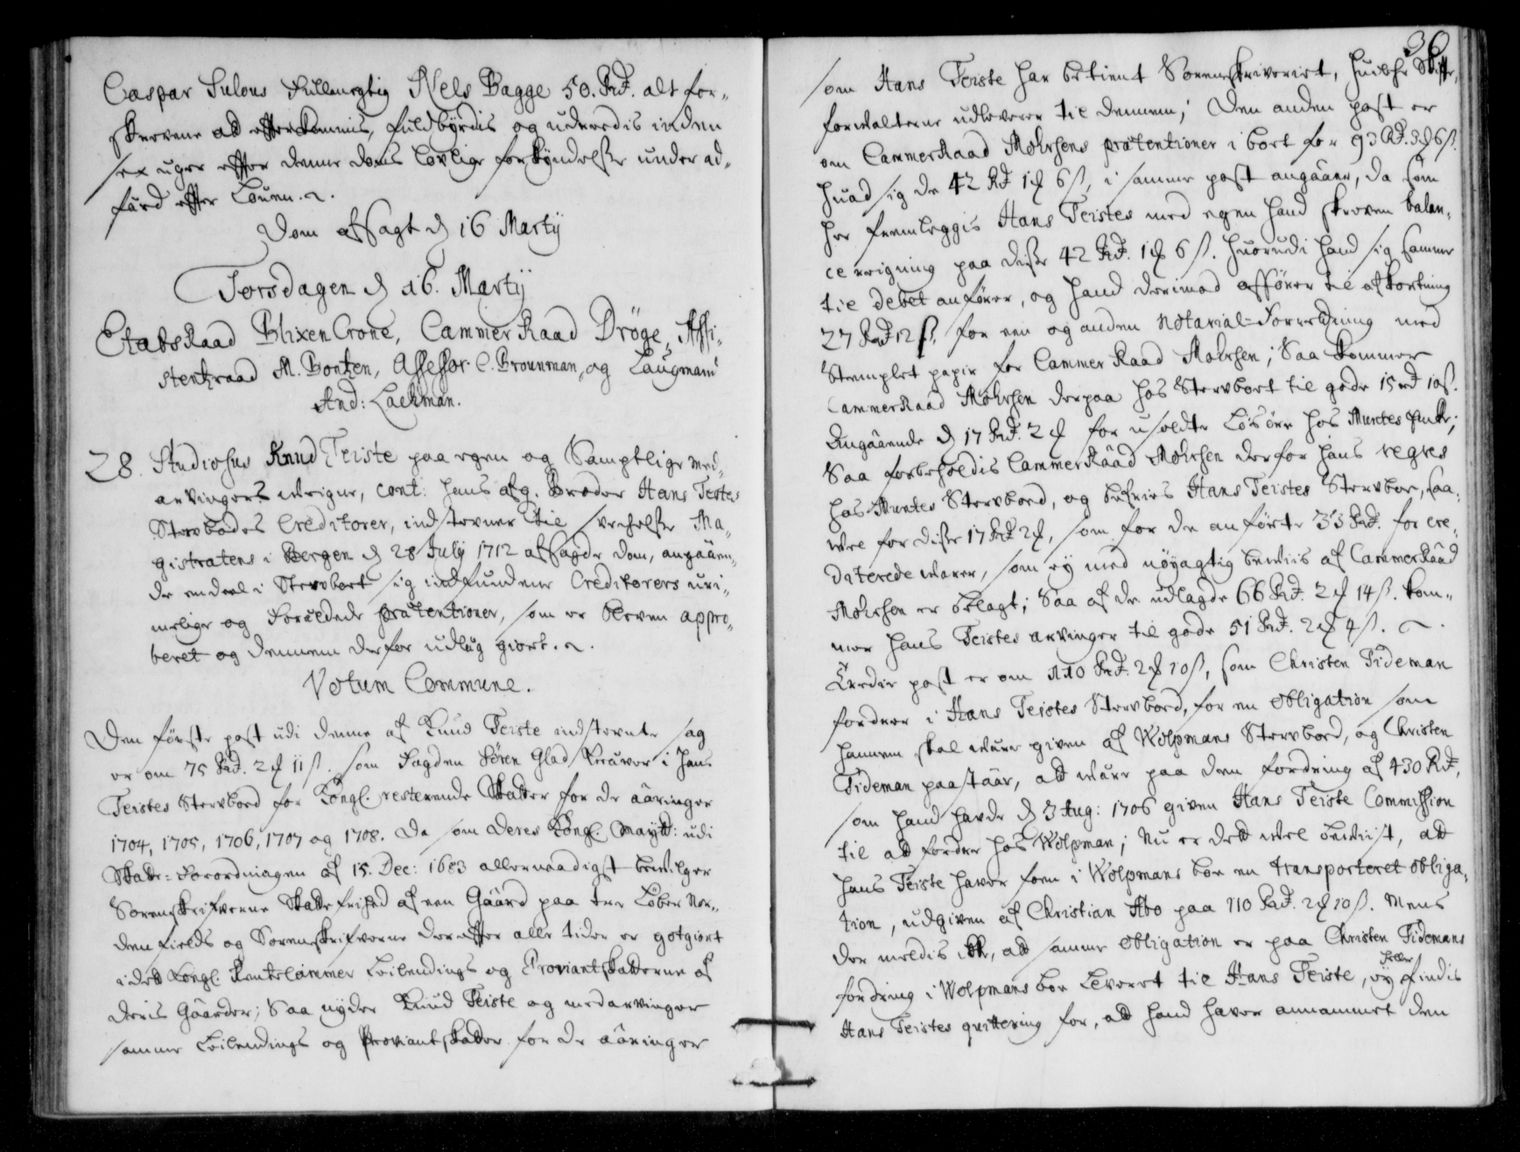 Caspar Sulous Fullmegtig Niels Bagge 50. Rd. alt for-
skrevene at efterkommis, fuldbyrdis og uderedis inden
sex uger efter denne doms lovlige forkyndelse under ad-
færd efter Loven.
Dom afsagt d 16 Martij
Torsdagen d 16. Martij
EtatsRaad Blixencrone, CammerRaad Dröge, Assi-
stentzraad M. Bontzen, Assessor C. Brounman, og Laugmand
And: Lachman.
28. Studiosus Knud Teiste paa egen og Samptlige med-
arvingers weigne, cont: hans afg. Broder Hans Teistes
Sterbboedes Creditorer, indstevner til svechelse Ma-
gistratens i Bergen d 28 July 1712 afsagde dom, angaaen-
de endeel i Sterbboet sig indfundene Creditorers uri-
melige og Forældede prætentioner, som er bleven appro-
beret og dennem derfor udlæg giort.
Votum Commune.
Den første post udi denne af Knud Teiste indstevnte sag
er om 75 Rd. 2 ℳ 11 ß. som Fogden Sören Glad Kræver i Hans
Teistes Sterbboed for Kongl. resterende Skatter for de aaringer
1704, 1705, 1706, 1707 og 1708. Da som Deres Kongl. Maytt: udi
Skatte-Forordningen af 15. Dec: 1683 allernaadigst bevilger
Sorenskrifverne Skattefrihed af een Gaard paa tre Løber Nor-
denfields og Sorenskrifverne derefter alle tider er gotgiort
i det Kongl. Rentecammer Leilendings og Proviantskatterne af
deris Gaarder; Saa nyder Knud Teiste og medarvinger
samme Leilendings og Proviantskatter for de aaringer
36
som Hans Teiste har betient Sorenskriveriet, huilche Skifte-
forvalterne udleverer til dennem; Den anden post er
om CammerRaad Mohrsens prætentioner i boet for 93 Rd. 3 ℳ 6 ß.
huad sig de 42 Rd 1 ℳ 6 ß, i samme post angaaer, da som
her fremleggis Hans Teistes med egen hand skreven balan-
ce reigning paa disse 42 Rd. 1 ℳ 6 ß. huorudi hand sig samme
til debet anfører, og hand derimod afførér til afkortning
27 Rd 12 ß, for een og anden Notarial-Forretning med
Stemplet papir for CammerRaad Mohrsen; Saa kommer
CammerRaad Mohrsen derpaa hos Sterbboet til gode 15 rd 10 ß.
Angaaende d 17 Rd. 2 ℳ for usoldte Løsøre hos Muntes Enke;
Saa forbeholdis CammerRaad Mohrsen derfor hans regres
hos Muntes Sterbboed, og befries Hans Teistes Sterbboe, saa-
vel for disse 17 Rd 2 ℳ, som for de anførte 33 Rd. for cre-
diterede varer, som ey med nøyagtig beviis af CammerRaad
Mohrsen er belagt; Saa af de udlagde 66 Rd. 2 ℳ 14 ß. kom-
mer Hans Teistes arvinger til gode 51 Rd. 2 ℳ 4 ß.
Tredie post er om 110 Rd. 2 ℳ 10 ß, som Christen Tideman
fordrer i Hans Teistes Sterbboed, for en Obligation som
hannem skal være given af Wolpmans Sterbboed, og Christen
Tideman paastaar, at være paa den fordring af 430 Rd,
som hand havde d 3 Aug: 1706 given Hans Teiste Commission
til at fordre hos Wolpman; Nu er dett vel beviist, at
Hans Teiste haver frem i Wolpmans boe en transporteret obliga-
tion, udgiven af Christian Abo paa 110 Rd. 2 ℳ 10 ß. Mens
der meldis ikke, at samme Obligation er paa Christen Tidemans
fordring i Wolpmans boe leveret til Hans Teiste, ey heller findis
Hans Teistes qvittering for, at hand haver annammet den